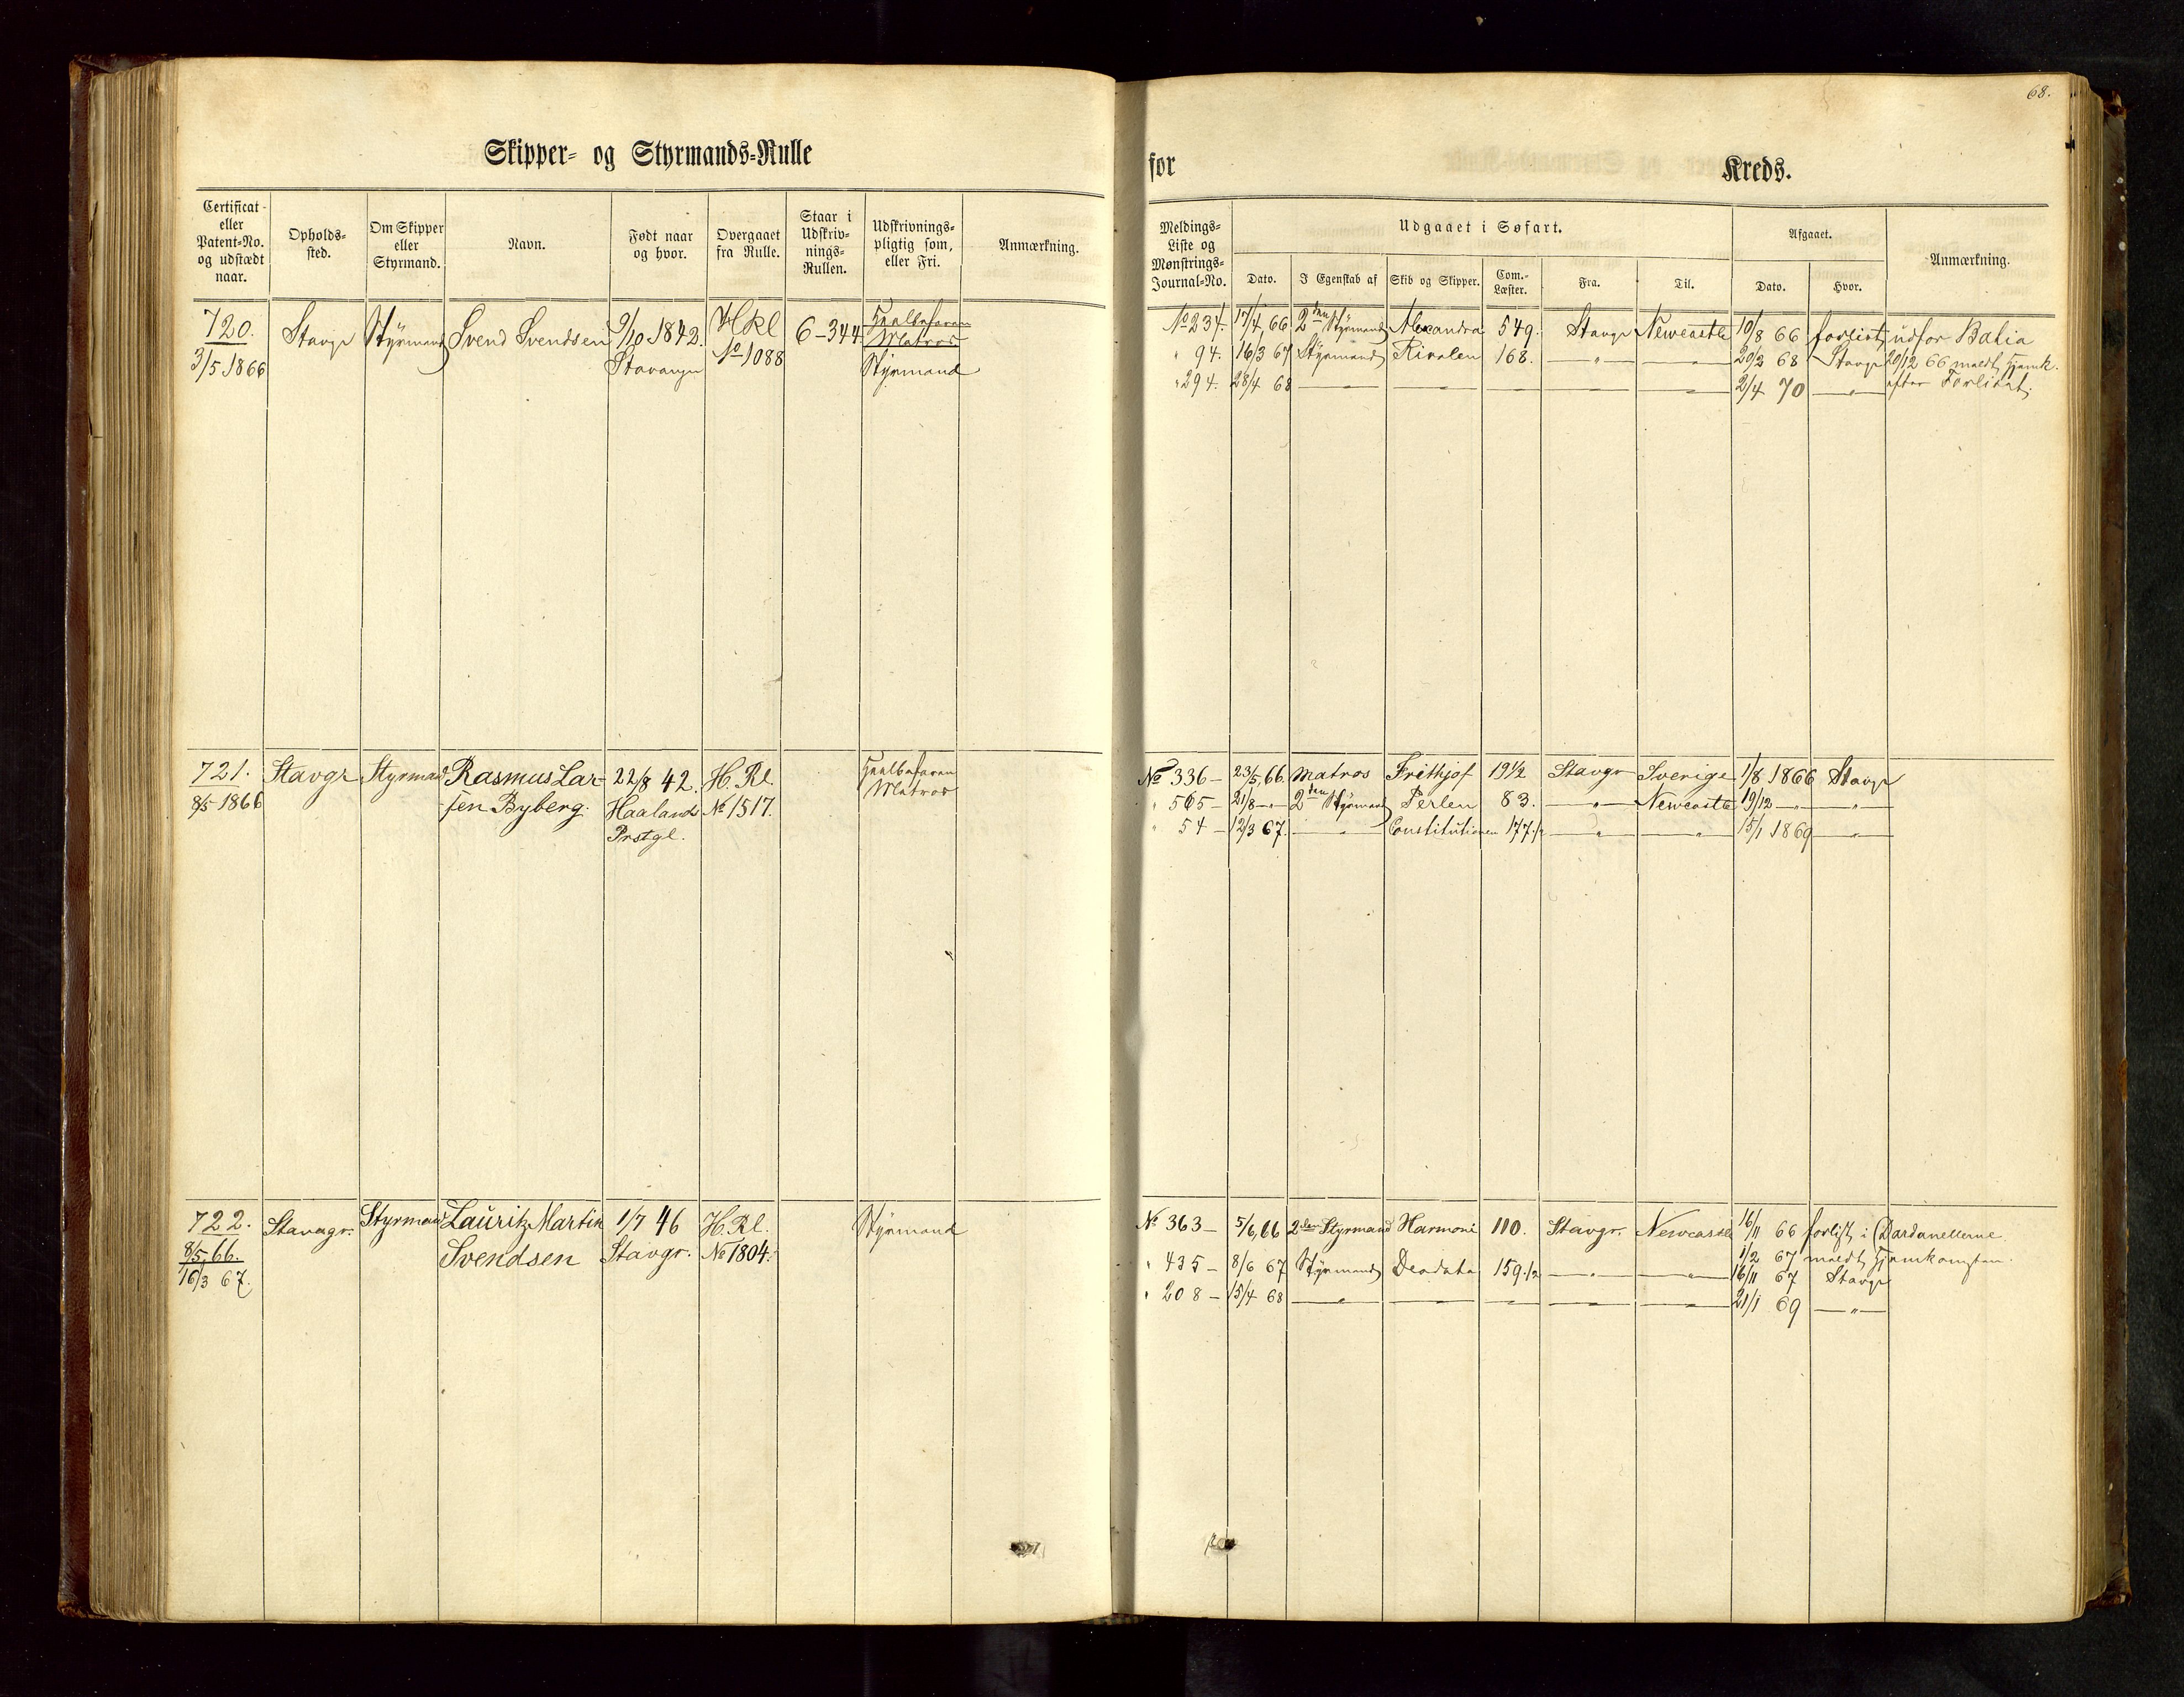 68.
Skipper- og Styrmands-Rulle
for Kreds.
Certificat- eller Patent-No. og udstædt naar.
Opholds-sted.
Om Skipper eller Styrmand.
Navn.
Født naar og hvor.
Overgaaet fra Rulle.
Staar i Udskriv-nings-Rullen.
Udskrivnings-pligtig som, eller Fri.
Anmærkning.
Meldings-Liste og Mønstrings-Journal-No.
Udgaaet i Søfart.
Dato.
I Egenskab af
Skib og Skipper.
Com.-Læster.
Fra.
Til.
Afgaaet.
Dato.
Hvor.
Anmærkning.
720. Stavgr Styrmand Svend Svendsen 9/10 1842. H Rl 6-344 Heelbefaren
3/5 1866 Stavanger No 1088 Matros
Styrmand
No 237. 17/4 66 2den Styrmand Alexandra 549. Stavgr Newcastle 10/8 66 forlist udfor Batia
" 94. 16/3 67 Styrmand Rivalen 168. — " — — " — 20/2 68 Stavgr 20/12 66 meldt Hjemk.
" 294. 28/4 68 — — — — " — — " — 2/4 70 — " — efter Forliset.
721. Stavgr Styrmand Rasmus Lar- 22/8 42. H. Rl. Heelbefaren
8/5 1866 sen Byberg. Haalands No 1517. Matros
Prstgl.
No 336 — 23/5 66. Matros Frithjof 19 1/2 Stavgr Sverige 1/8 1866 Stavgr
" 565 — 21/8 — " — 2den Styrmand Perlen 83. — " — Newcastle 19/12 — " — — " —
" 54 — 12/3 67. — " — Constitutionen 177 1/2 — " — — " — 15/1 1869 — " —
722. Stavagr. Styrmand Lauritz Martin 1/7 46 H. Rl. Styrmand
8/5 66. Svendsen Stavgr. No 1804.
16/3 67.
No 363 — 5/6 66 2den Styrmand Harmoni 110. Stavgr. Newcastle 16/11 66 forlist i Dardanellerne.
1/2 67 meldt Hjemkomsten.
" 435 — 8/6 67 Styrmand Deodata 159 1/2 — " — — " — 16/11 67 Stavgr
" 208 — 15/4 68 — " — — " — — " — — " — — " — 21/1 69 — " —